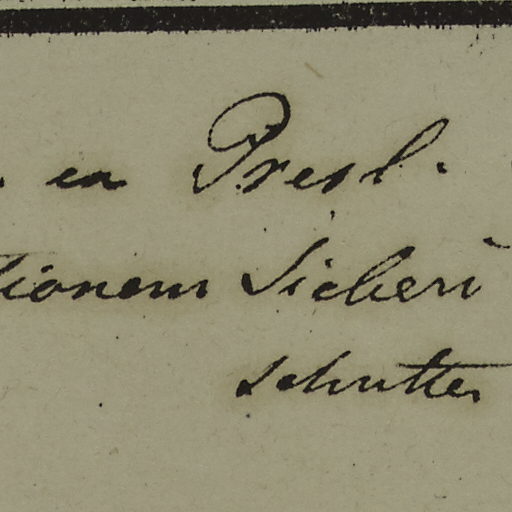 . ex Presl.
tionem Sieberi
schutter